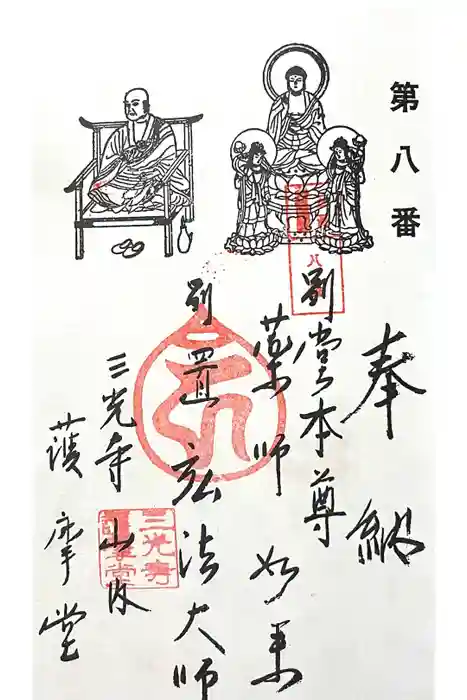 第八番
奉納
別堂本尊
薬師如来
別置弘法大師
三光寺山内
護摩堂
八
三光寺